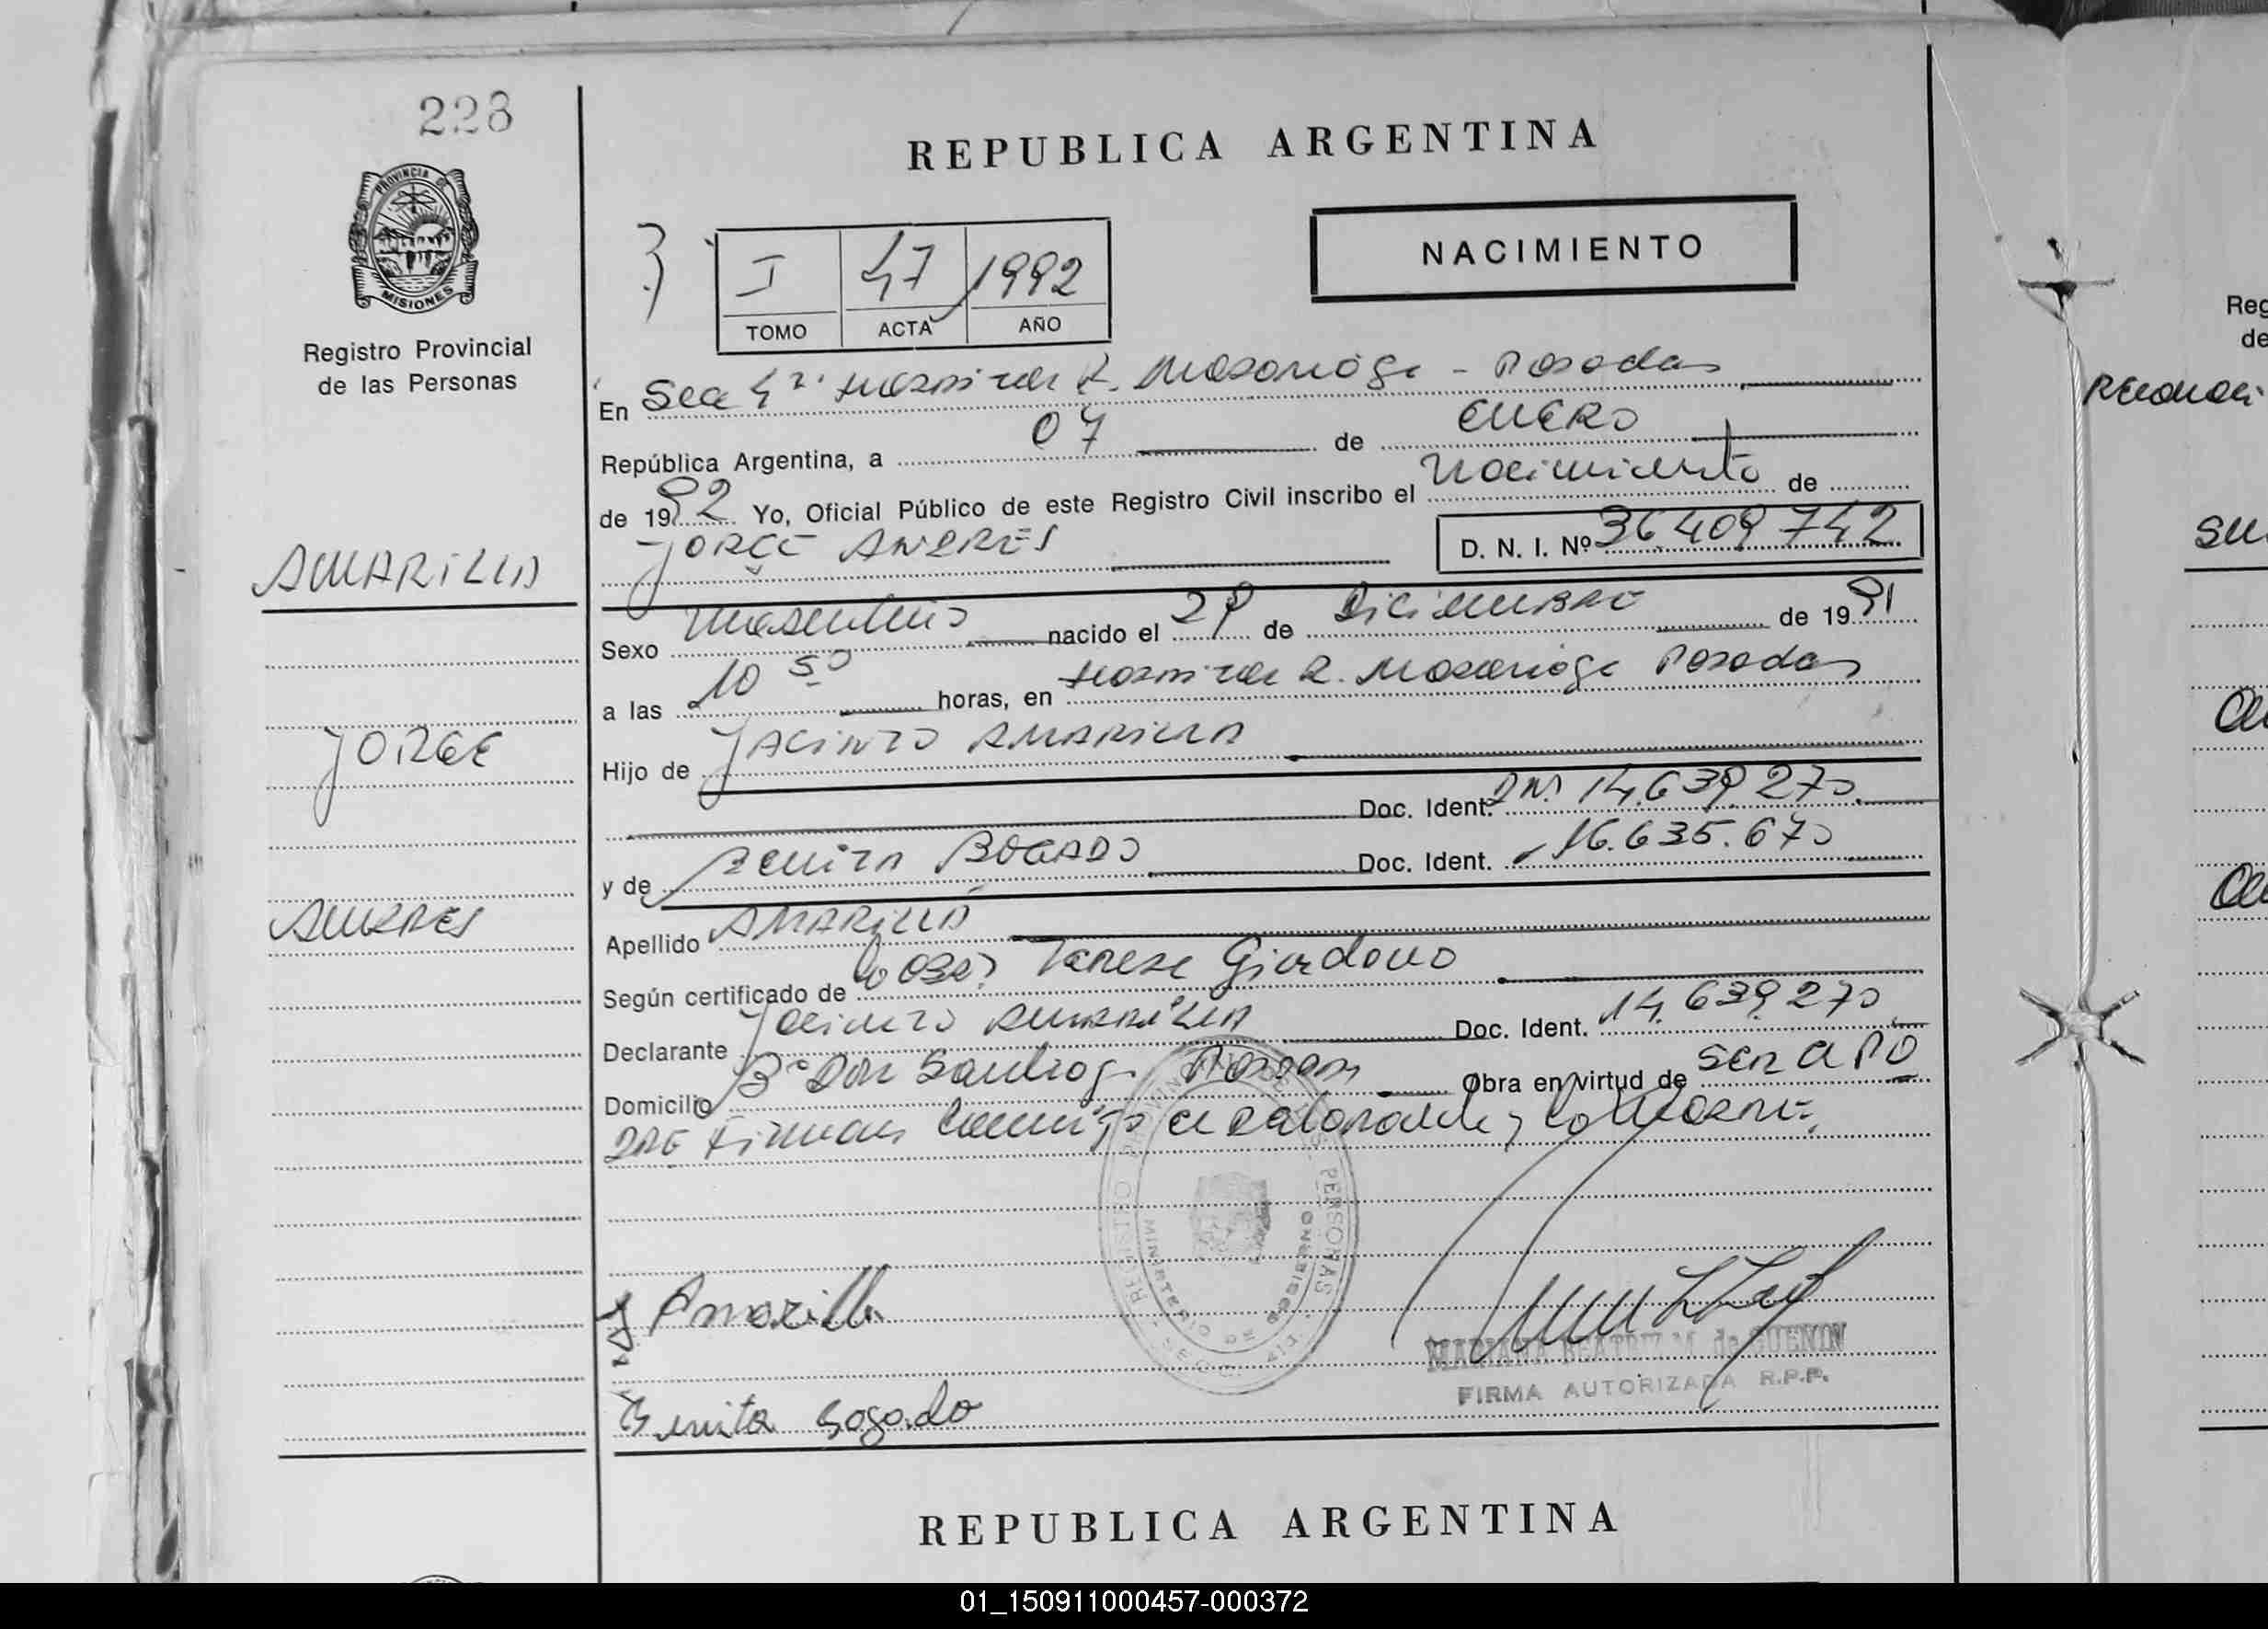 228
REPUBLICA ARGENTINA
PROVINCIA DE
MISIONES
Registro Provincial
de las Personas
NACIMIENTO
I 47 1992
TOMO ACTA AÑO
En Sec 4ª Hospital R. Madariaga - Posadas
República Argentina, a 07 de ENERO
de 1992 Yo, Oficial Público de este Registro Civil inscribo el Nacimiento de
JORGE ANDRES D. N. I. Nº 36409742
AMARILLA
JORGE
ANDRES
Sexo Masculino nacido el 29 de DICIEMBRE de 1991
a las 10 50 horas, en Hospital R. Madariaga Posadas
Hijo de JACINTO AMARILLA
Doc. Ident. DNI 14.639.270
y de BENITA BOGADO Doc. Ident. 16.635.670
Apellido AMARILLA
Según certificado de Teresa Giordano
Declarante Jacinto AMARILLA Doc. Ident. 14.639.270
Domicilio Bº Don Santiago Posadas Obra en virtud de SER EL PA
DRE Firman Conmigo el declarante y
REGISTRO PROVINCIAL DE LAS PERSONAS
MINISTERIO DE GOBIERNO
J Amarilla
MARIANA BEATRIZ M. de GUENIN
FIRMA AUTORIZADA R.P.P.
Benita Bogado
REPUBLICA ARGENTINA
Reg
de
01_150911000457-000372